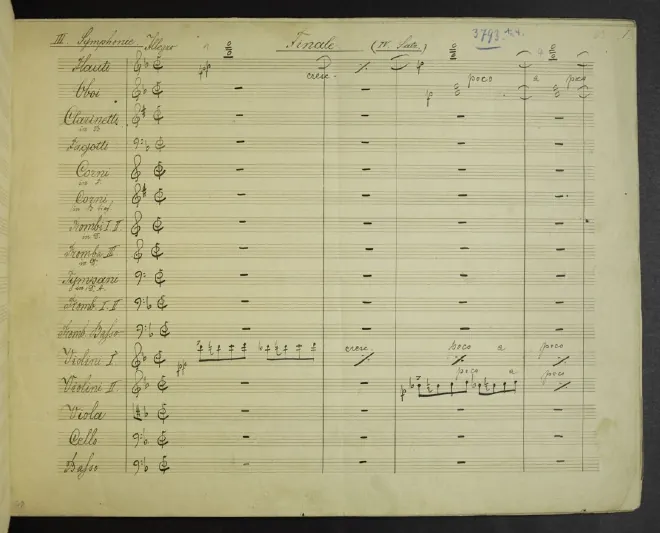 III Symphonie Allegro Finale (IV. Satz.)
Flauti pp cresc. p
Oboi p poco a poco
Clarinetti
in B
Fagotti
Corni
in F
Corni
Trombi I. II
Trombi III
Tympani
Tromb. I. II
Tromb. Basso
Violini I. pp cresc. poco a poco
Violini II p poco a poco
Viola
Cello
Basso